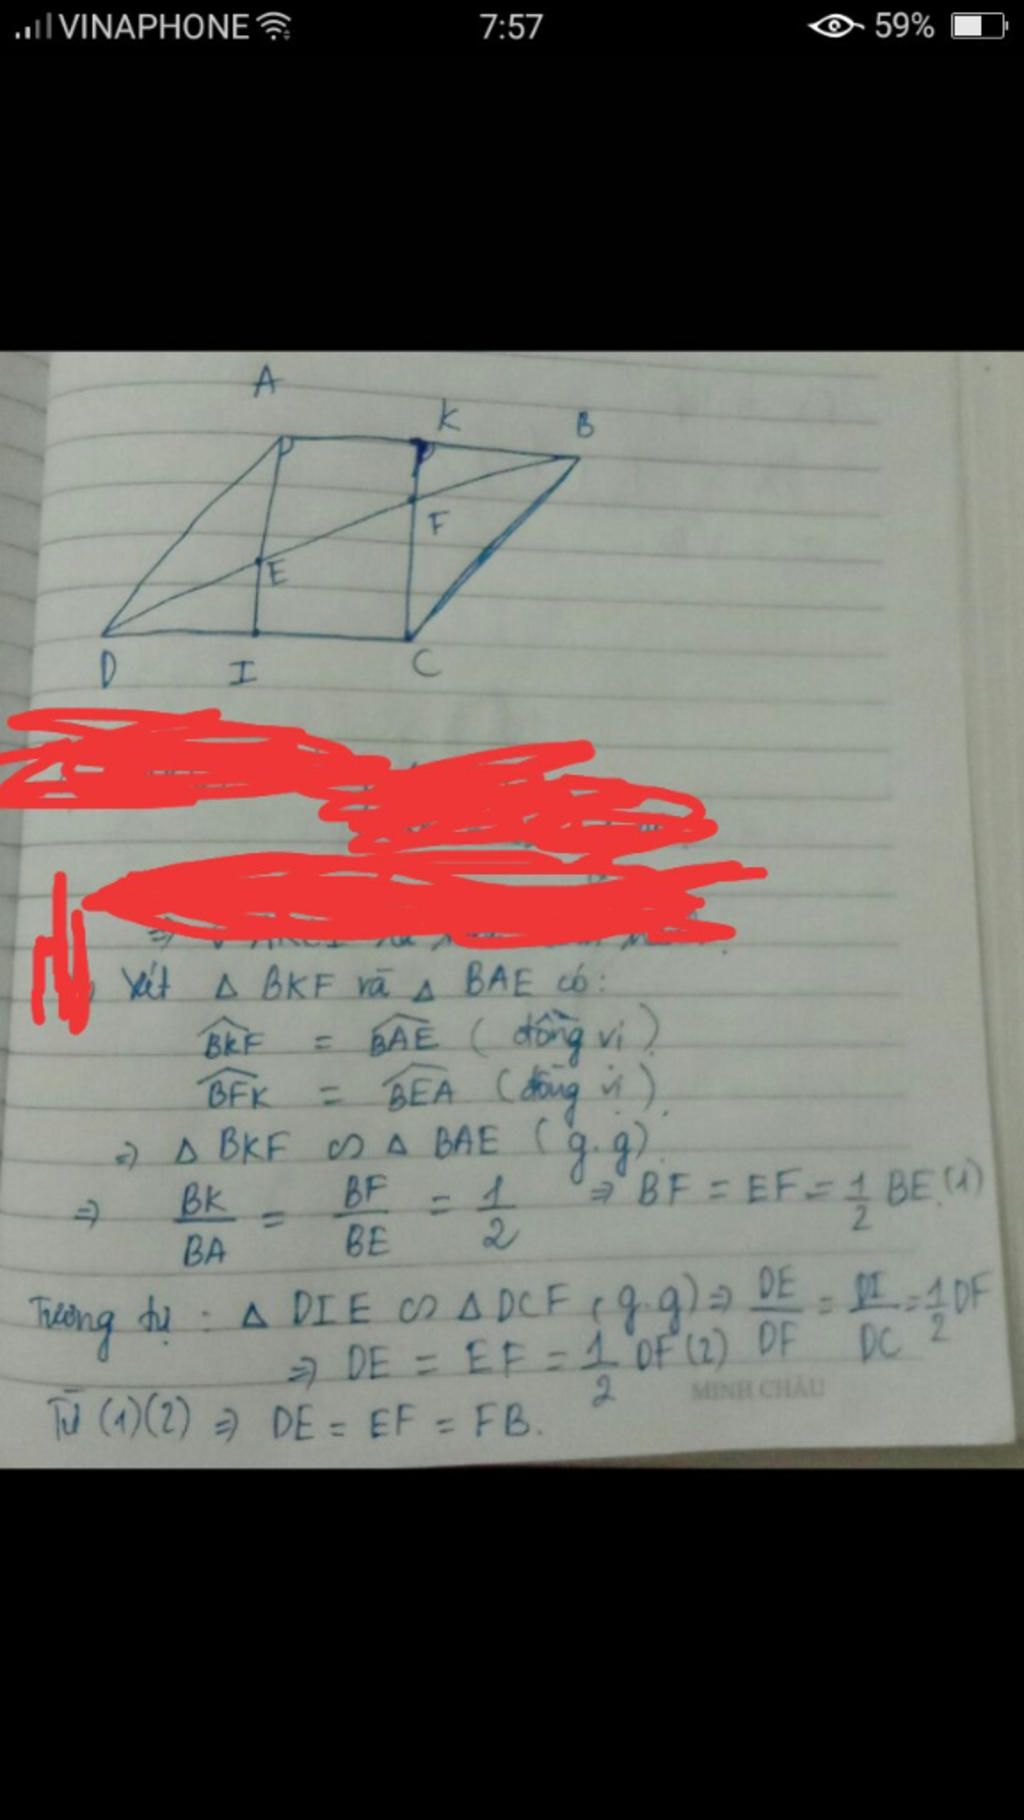 VINAPHONE 7:57 59%
A
K B
F
E
D I C
Xét Δ BKF và Δ BAE có:
BKF = BAE (đồng vị)
BFK = BEA (đồng vị).
=> Δ BKF ∽ Δ BAE (g.g)
=> BK/BA = BF/BE = 1/2 => BF = EF = 1/2 BE (1)
Tương tự : Δ DIE ∽ Δ DCF (g.g) => DE/DF = DI/DC = 1/2 DF
=> DE = EF = 1/2 DF (2)
MINH CHÂU
Từ (1)(2) => DE = EF = FB.